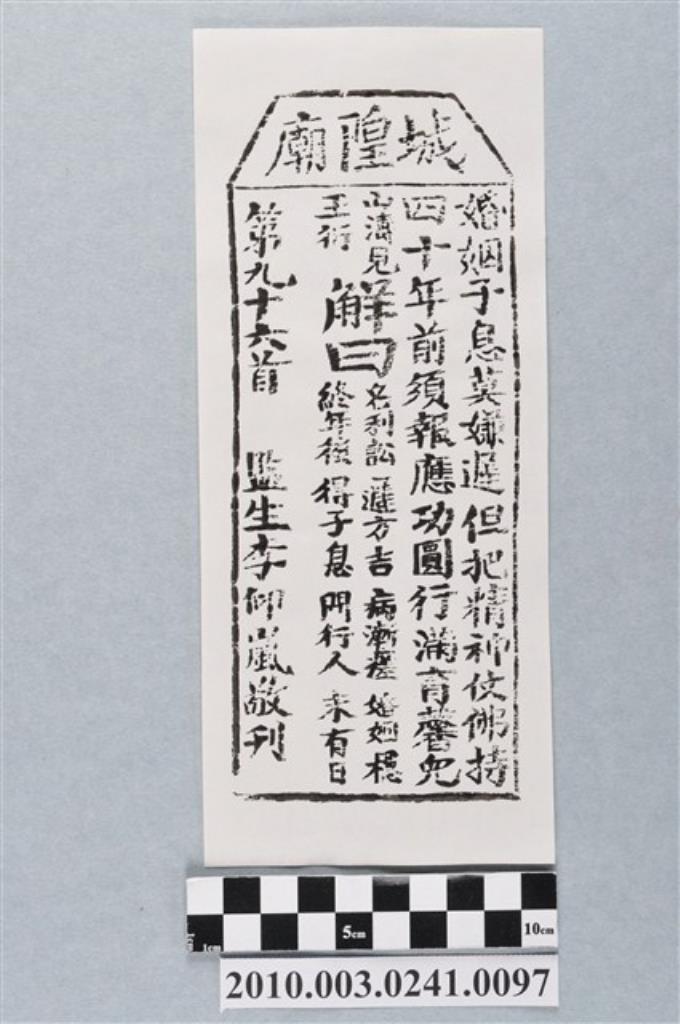 城隍廟
婚姻子息莫嫌遲但把精神仗佛持
四十年前須報應功圓行滿育馨兒
山濤見王衍
解曰
名利訟 遲方吉 病漸瘥 婚姻穩
終年後 得子息 問行人 未有日
第九十六首 監生李仰嵐敬刊
1cm 5cm 10cm
2010.003.0241.0097